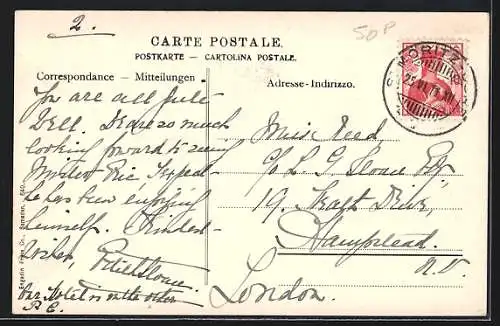 2.
50 P
CARTE POSTALE.
POSTKARTE — CARTOLINA POSTALE.
Correspondance — Mitteilungen
Adresse-Indirizzo.
ST. MORITZ
You are all quite
Well. I do so much
looking forward to seeing
Master Eric, I
he has been enjoying
himself. Kindest
Wishes,
Our Hotel is on the other
P.C.
Miss Reed,
c/o L. G. Sloane Esq,
19,
Hampstead.
N.W.
London.
Engadin Press Co., Samaden.